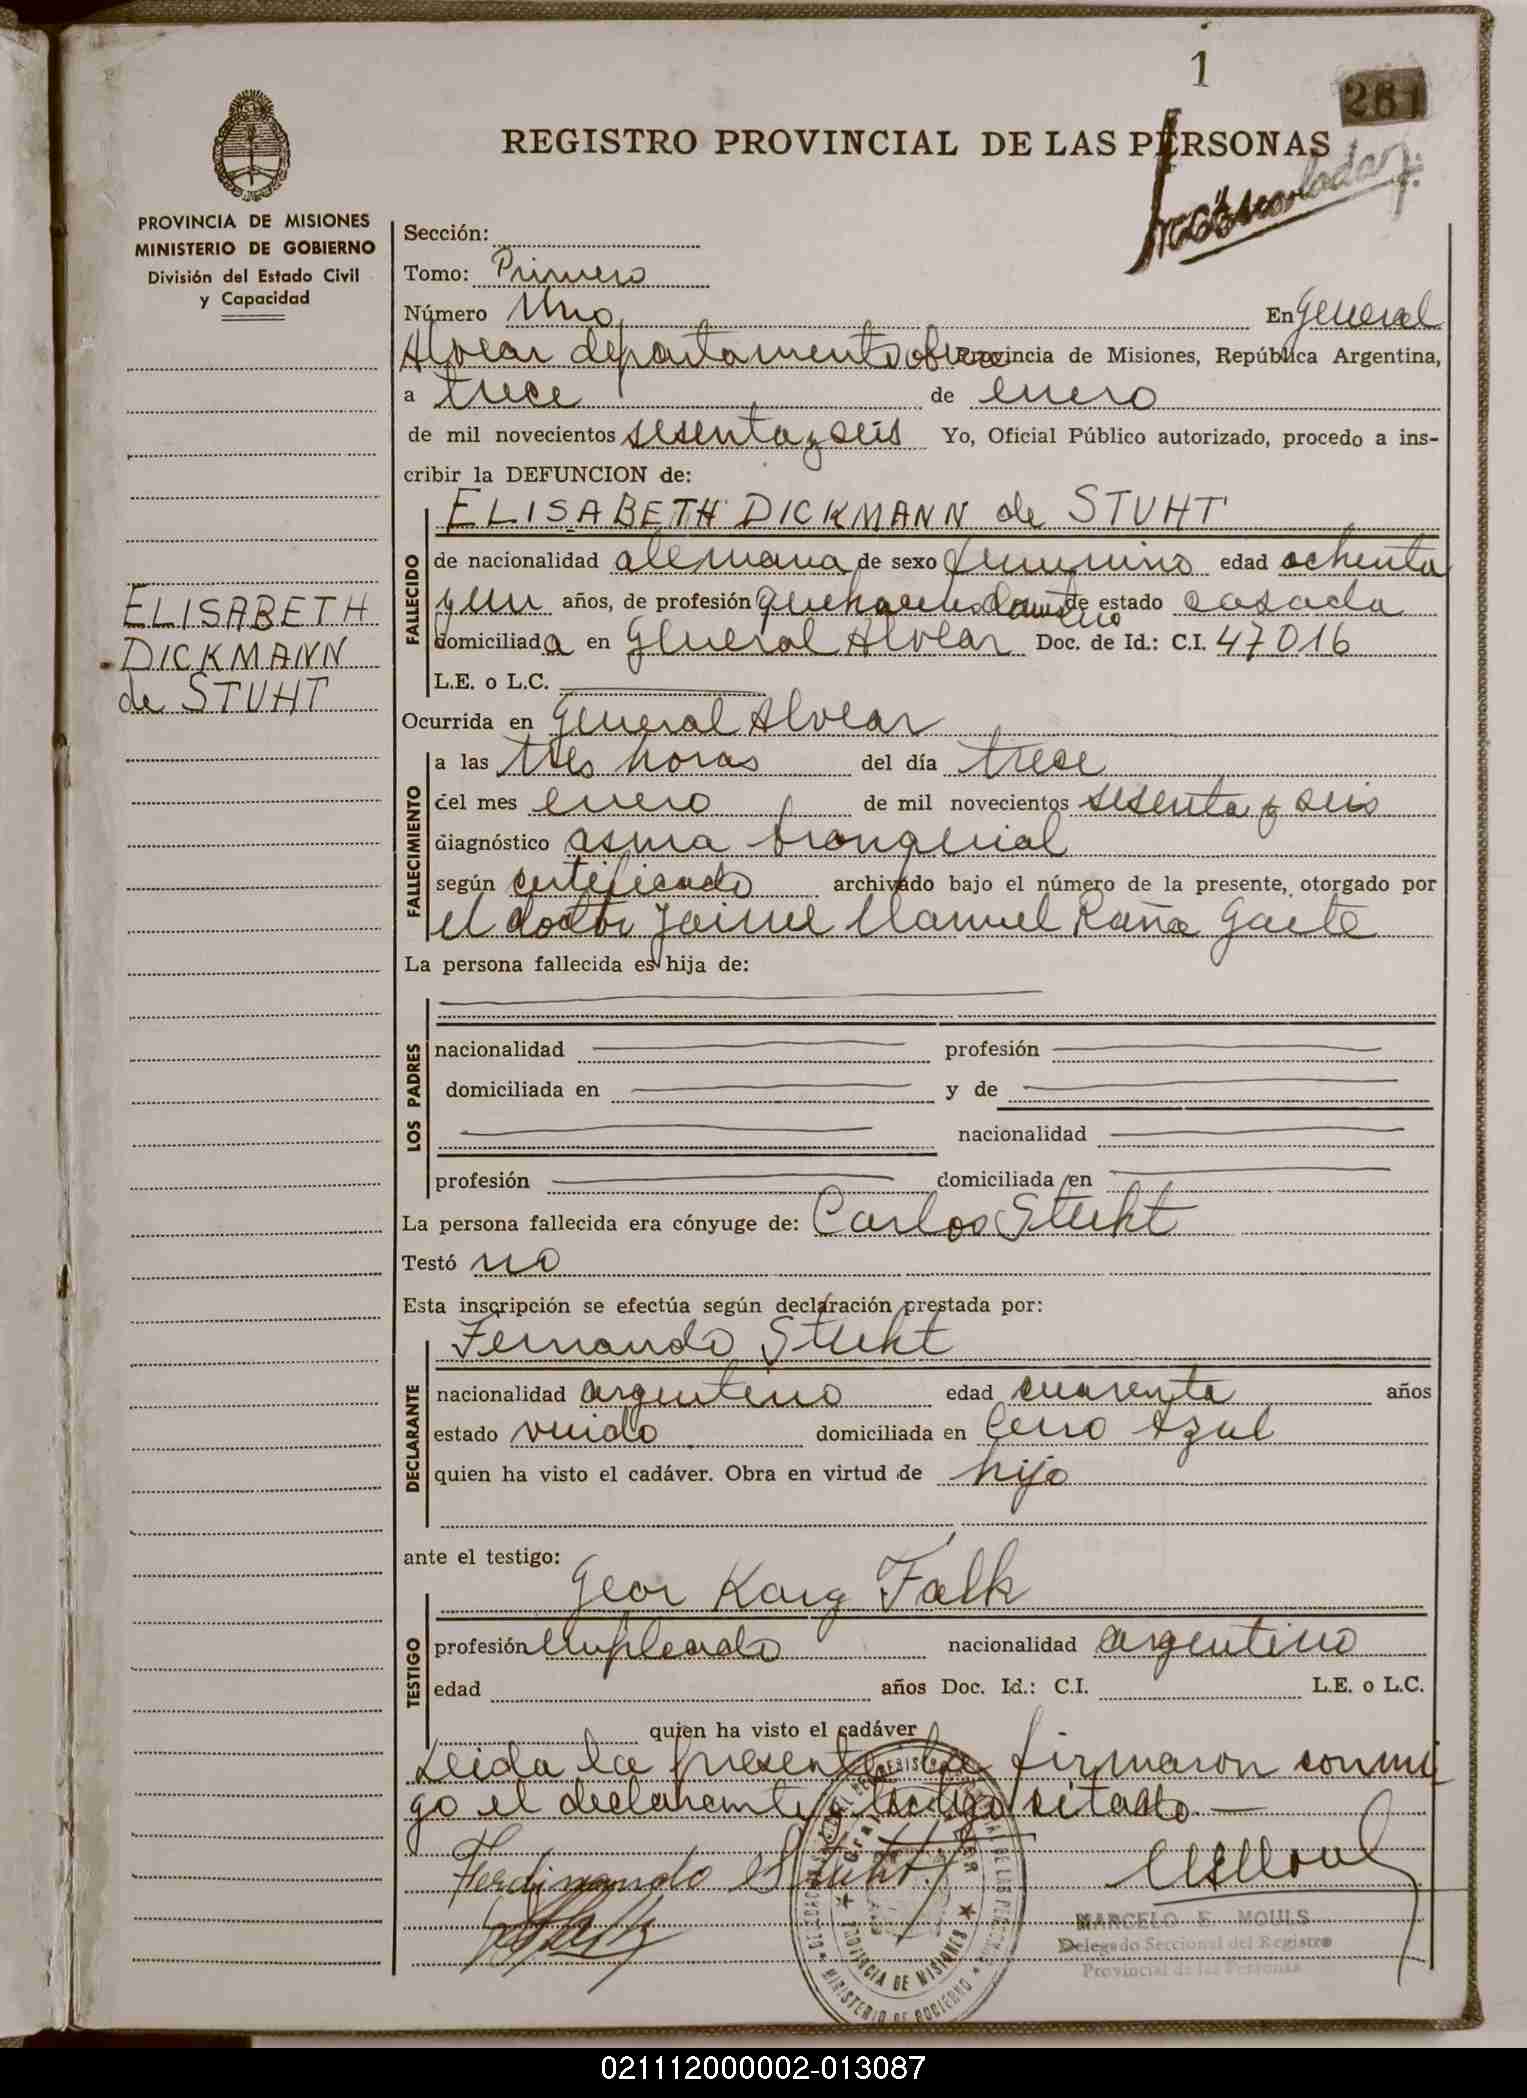 1
261
REGISTRO PROVINCIAL DE LAS PERSONAS
PROVINCIA DE MISIONES
MINISTERIO DE GOBIERNO
División del Estado Civil
y Capacidad
Sección:
Tomo: Primero
Número Uno En General
Alvear departamento Provincia de Misiones, República Argentina,
a trece de enero
de mil novecientos sesenta y seis Yo, Oficial Público autorizado, procedo a ins-
cribir la DEFUNCION de:
ELISABETH DICKMANN de STUHT
FALLECIDO
de nacionalidad alemana de sexo femenino edad ochenta
y un años, de profesión quehacer doméstico de estado casada
domiciliada en General Alvear Doc. de Id.: C.I. 47016
L.E. o L.C.
ELISABETH
DICKMANN
de STUHT
Ocurrida en General Alvear
FALLECIMIENTO
a las tres horas del día trece
del mes enero de mil novecientos sesenta y seis
diagnóstico asma bronquial
según certificado archivado bajo el número de la presente, otorgado por
el doctor Jaime Manuel Raña Gaete
La persona fallecida es hija de:
LOS PADRES
nacionalidad profesión
domiciliada en y de
nacionalidad
profesión domiciliada en
La persona fallecida era cónyuge de: Carlos Stuht
Testó no
Esta inscripción se efectúa según declaración prestada por:
Fernando Stuht
DECLARANTE
nacionalidad argentino edad cuarenta años
estado viudo domiciliada en Cerro Azul
quien ha visto el cadáver. Obra en virtud de hijo
ante el testigo:
Geor Karg Falk
TESTIGO
profesión empleado nacionalidad argentino
edad años Doc. Id.: C.I. L.E. o L.C.
quien ha visto el cadáver
Leida la presente la firmaron conmi
go el declarante y testigo citado.—
Ferdinando Stuht
MARCELO E. MOULS
Delegado Seccional del Registro
Provincial de las Personas
PROVINCIA DE MISIONES
MINISTERIO DE GOBIERNO
021112000002-013087